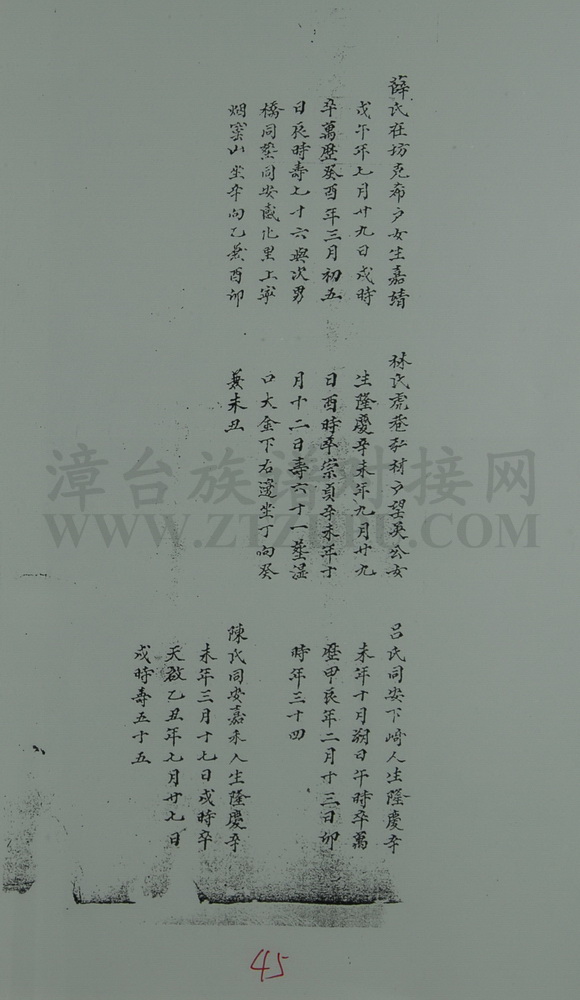 薛氏在坊克希户女生嘉靖
戊午年七月廿九日戌時
卒萬歷癸酉年三月初五
日辰時壽七十六與次男
橋同塟同安感化里上寧
烟窯山坐辛向乙兼酉卯
林氏虎巷弘材户望英公女
生隆慶辛未年九月廿九
日酉時卒崇貞辛未年十
月十二日壽六十一塟湿
口大金下右邊坐丁向癸
兼未丑
呂氏同安下崎人生隆慶辛
未年十月朔日午時卒萬
歷甲辰年二月十三日卯
時年三十四
陳氏同安嘉禾人生隆慶辛
未年三月十七日戌時卒
天啟乙丑年七月廿七日
戌時壽五十五
漳台族谱对接网
WWW.ZTZUPU.COM
45